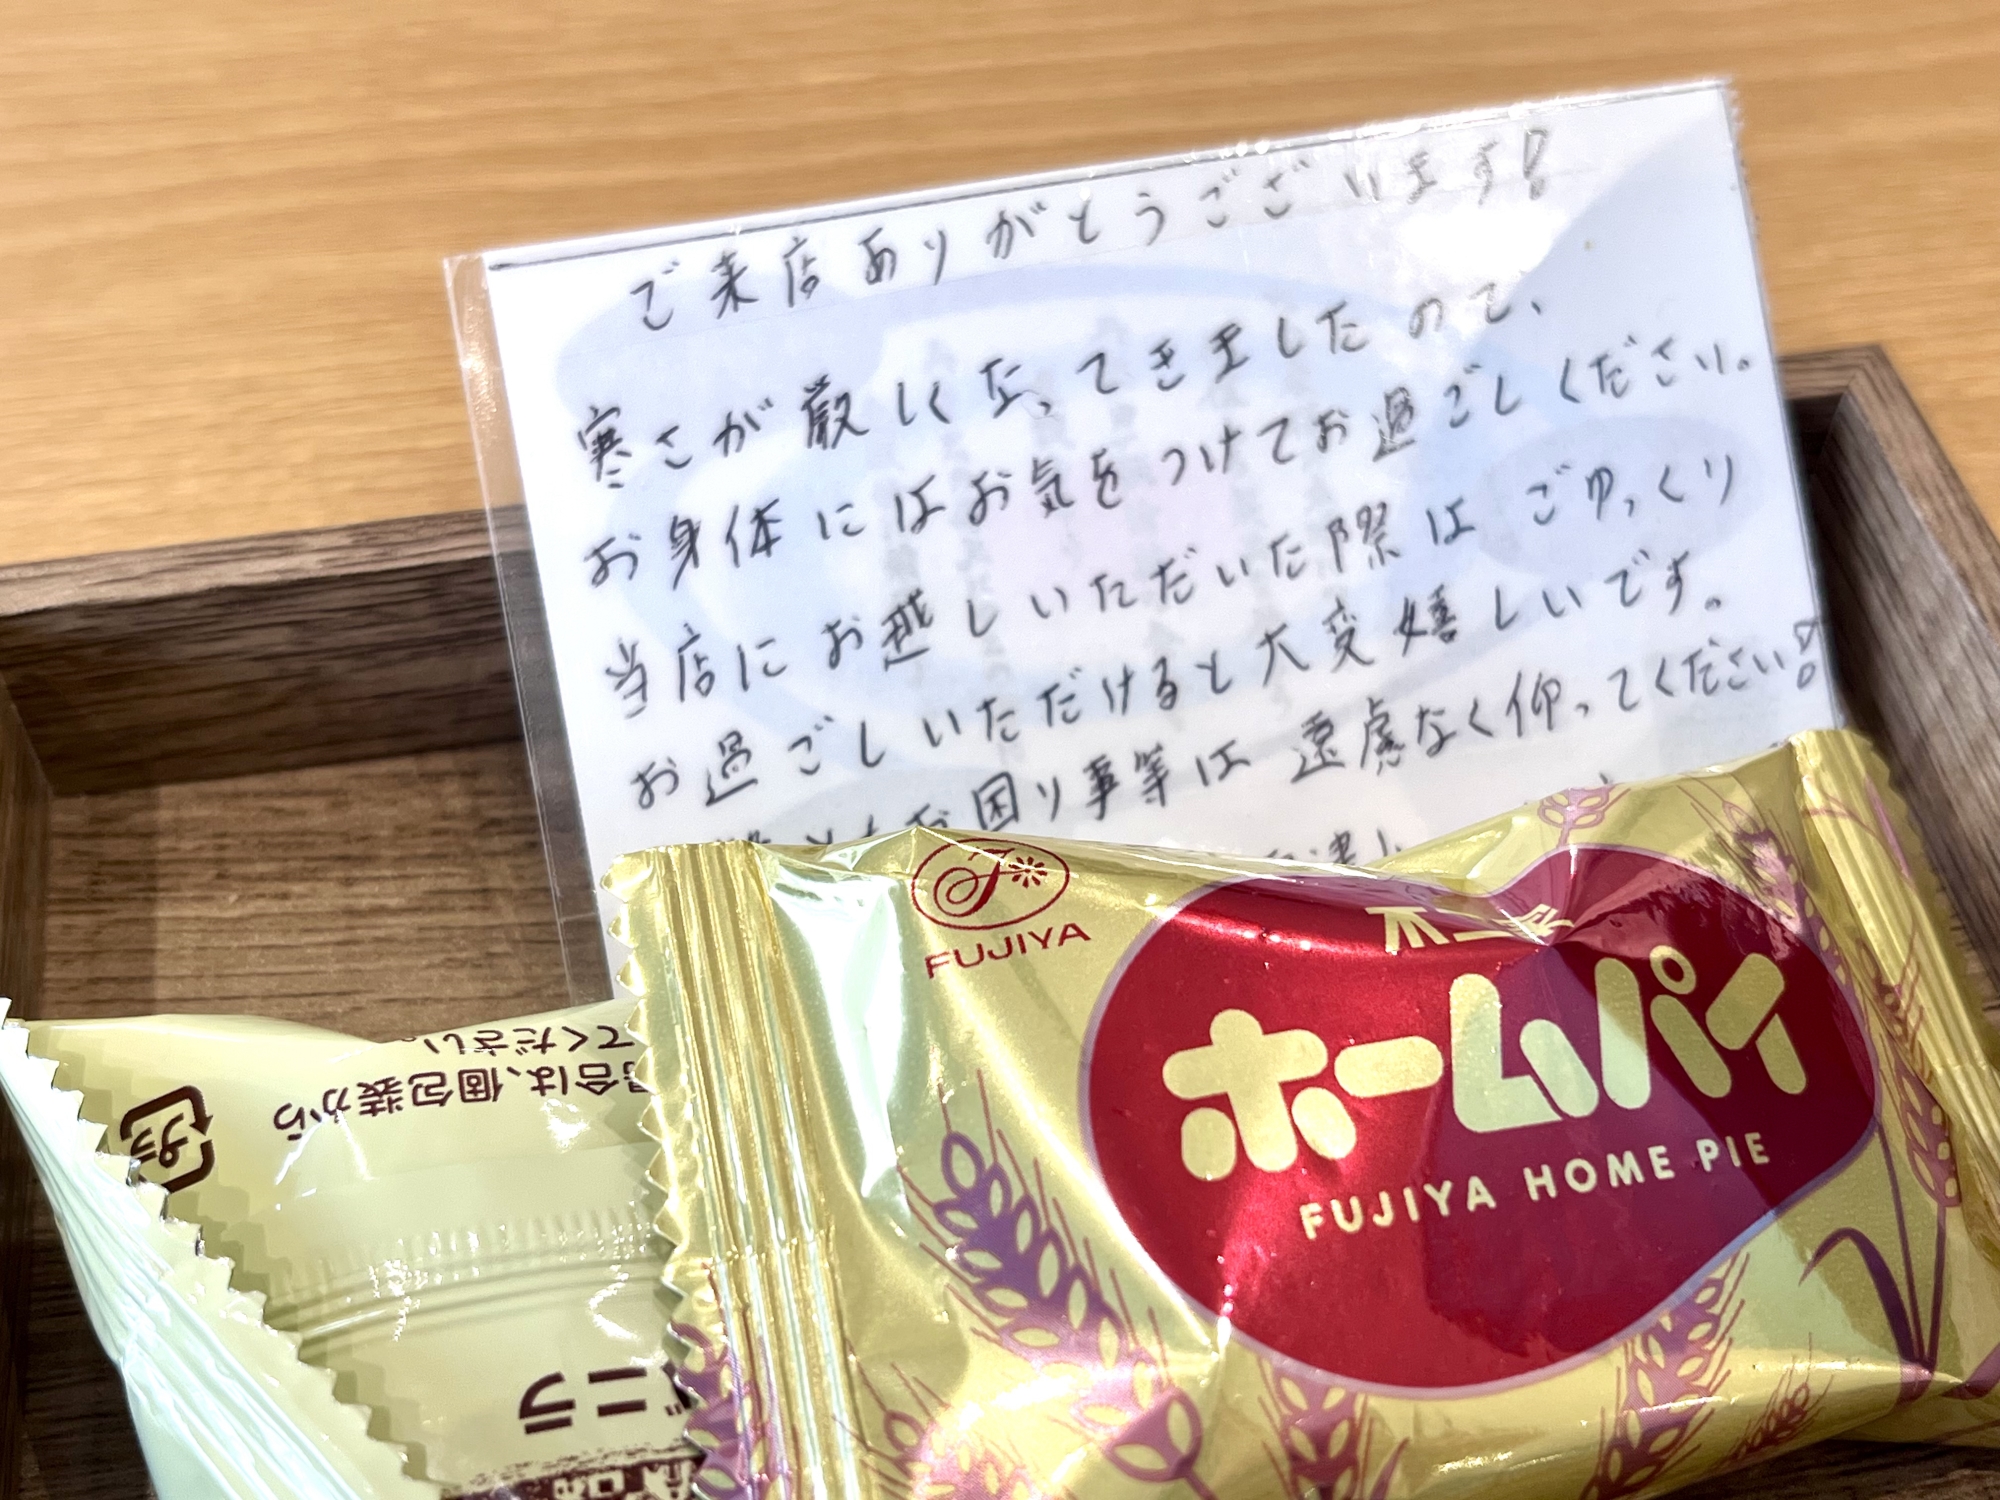 ご来店ありがとうございます!
寒さが厳しくなってきましたので、
お身体にはお気をつけてお過ごしください。
当店にお越しいただいた際はごゆっくり
お過ごしいただけると大変嬉しいです。
お困り事等は遠慮なく仰ってください!
FUJIYA
不二家
ホームパイ
FUJIYA HOME PIE
場合は、個包装から
てください。
プラ
バニラ